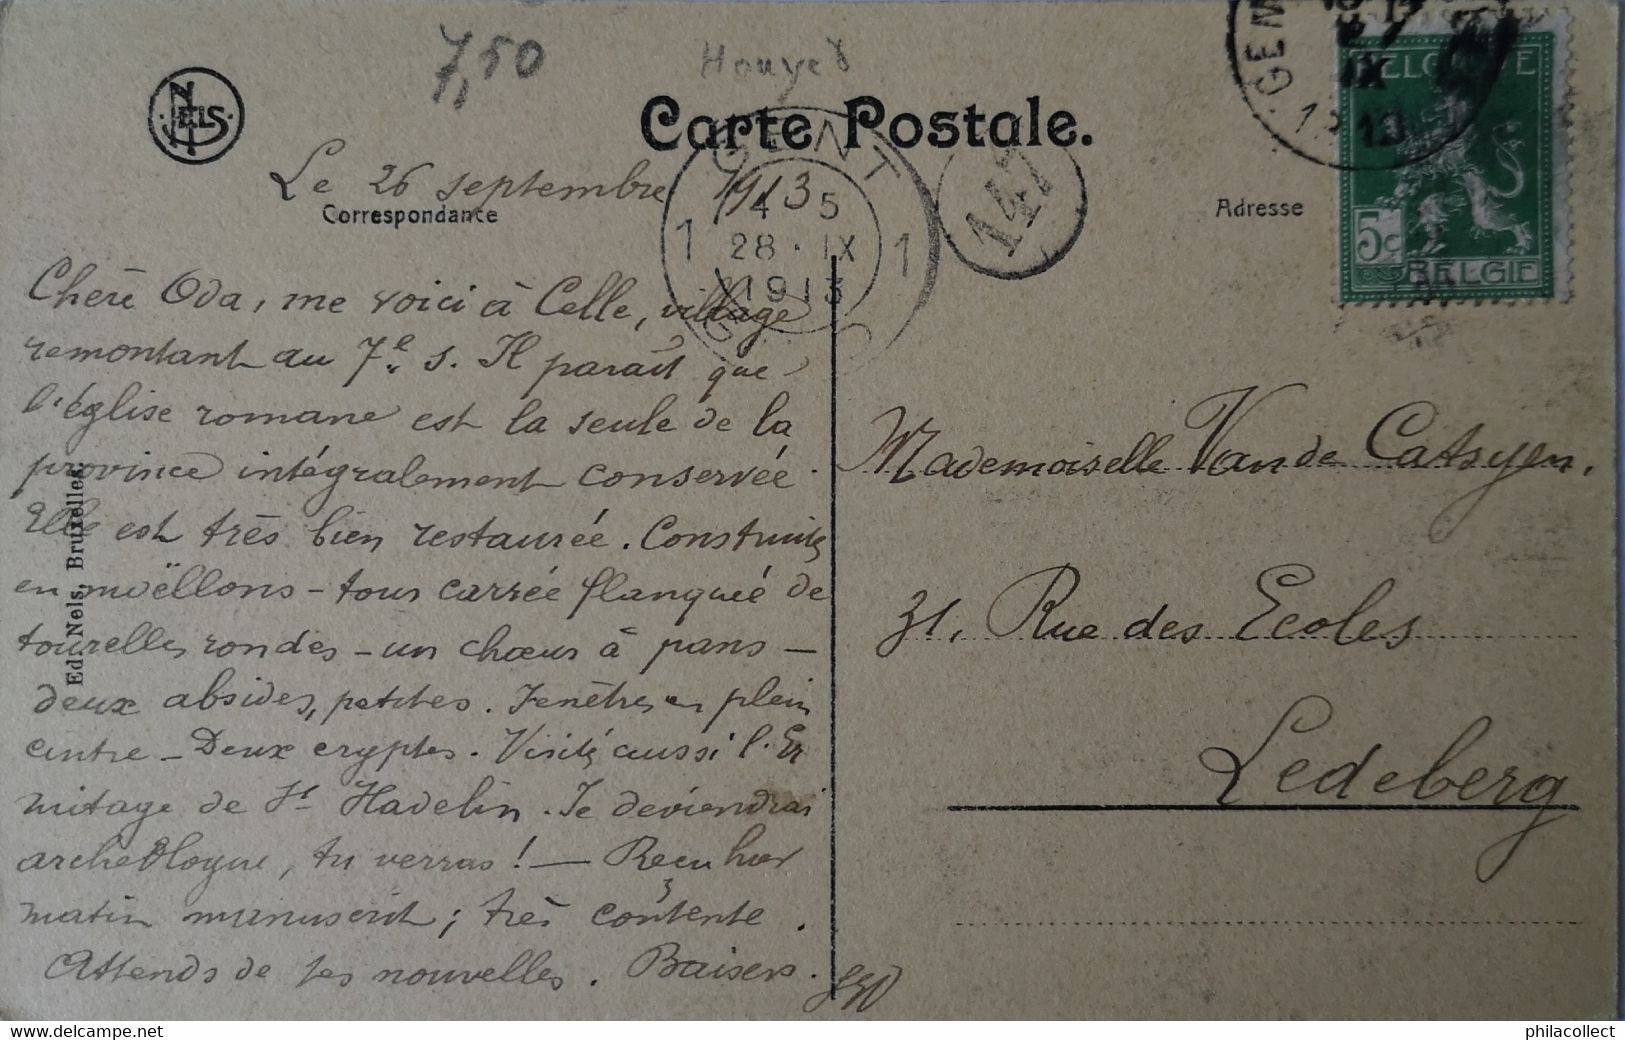 7,50
Houyet
NELS
Carte Postale.
GENT
1 4-5 1
28·IX
1913
GAND
147
GEM
IX
13
BELGIQUE
5c
BELGIE
Le 26 septembre 1913
Correspondance
Adresse
Chère Oda, me voici à Celle, village
remontant au 7e s. Il paraît que
l'église romane est la seule de la
province intégralement conservée.
Elle est très bien restaurée. Construite
en moëllons – tour carrée flanquée de
tourelles rondes – un chœur à pans –
deux absides, petites. Fenêtres en plein
cintre – Deux cryptes. Visité aussi l'Er
mitage de St Hadelin. Je deviendrai
archéologue, tu verras ! — Reçu hier
matin manuscrit ; très contente.
Attends de tes nouvelles. Baisers.
Ed. Nels, Bruxelles.
Mademoiselle Van de Catsyen.
31, Rue des Ecoles
Ledeberg
philacollect